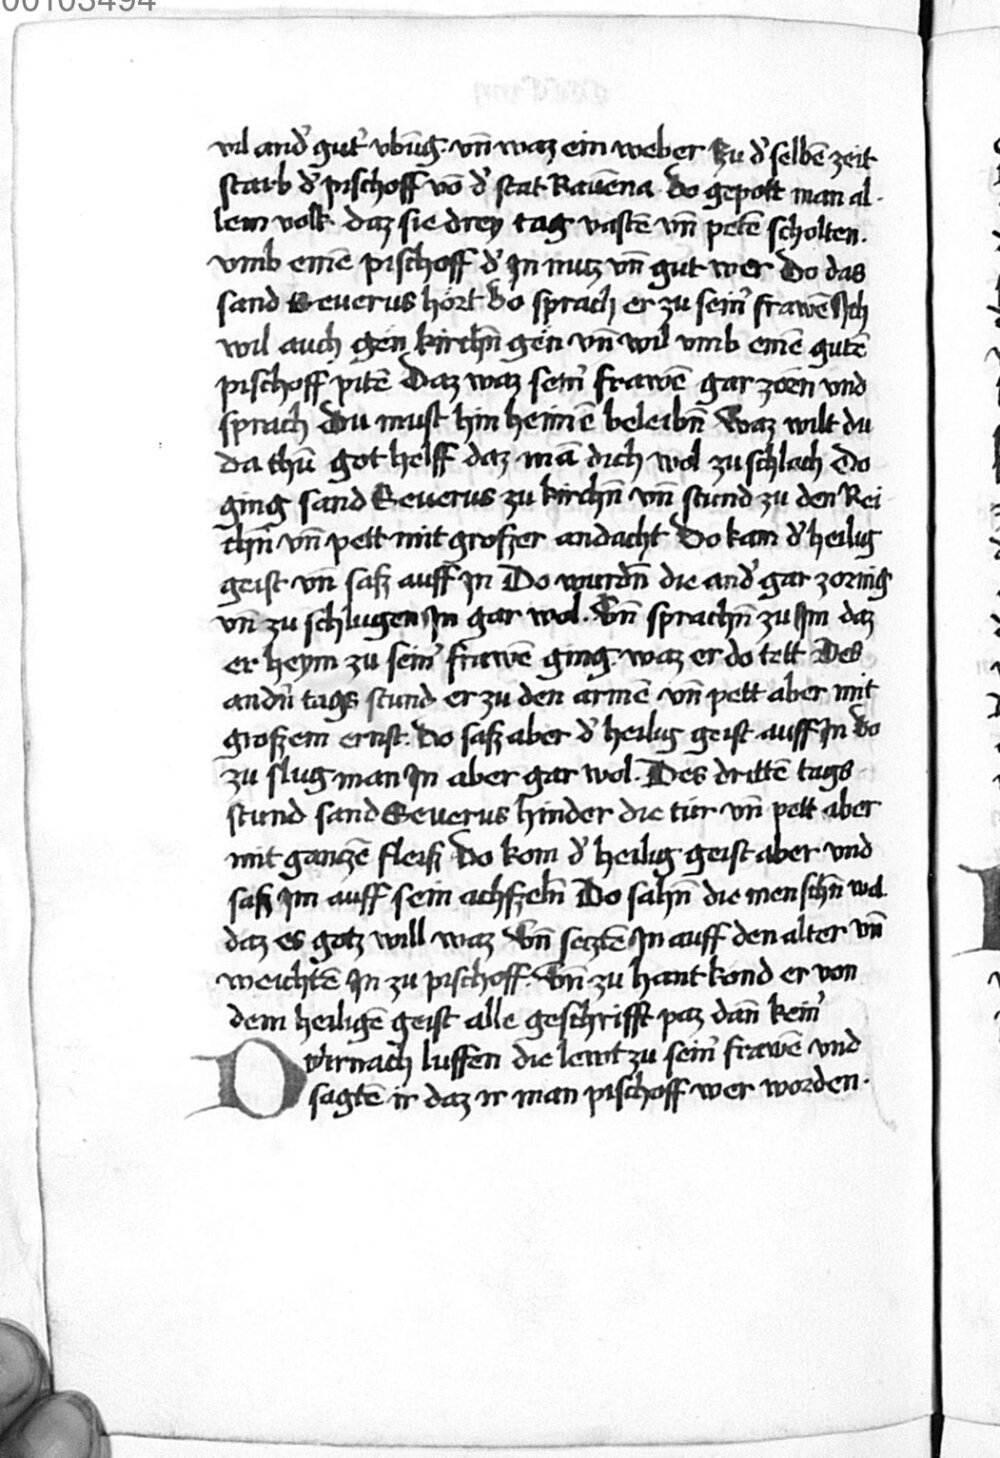 00103494
vil and̾ gut̾ vbūg· vn̄ waz ein weber Zu d̾ selbē zeit
starb d̾ pischoff vō d̾ stat Rauēna do gepott man al-
lem volk daz sie drey tag vastē vn̄ petē scholten.
vmb einē pischoff d̾ Jn nutz vn̄ gut wer Do das
sand Seuerus hört do sprach er zu sein̾ frawē Jch
wil auch gen kirchn̄ gen vn̄ wil vmb einē gutē
pischoff pitē Daz waz sein̾ frawē gar zoēn vnd
sprach Du must hin heimē beleibn̄ Waz wilt du
da thū got helff daz mā dich wol zu schlach Do
ging sand Seuerus zu kirchn̄ vn̄ stund zu den Rei
chn̄ vn̄ pett mit großer andacht Do kam d̾ heilig
geist vn̄ saß auff Jn Do wurdn̄ die and̾ gar zornig
vn̄ zu schlugen Jn gar wol. Vn̄ sprachn̄ zu Jm daz
er heym zu sein̾ frawē ging· waz er do tett Des
andn̄ tags stund er zu den armē vn̄ pett aber mit
großem ernst· Do saß aber d̾ heilig geist auff Jn do
zu slug man Jn aber gar wol. Des drittē tags
stund sand Seuerus hinder die tür vn̄ pett aber
mit ganzē fleiß Do kom d̾ heilig geist aber vnd
saß Jm auff sein achßeln̄ Do sahn̄ die menschn̄ wol
daz es gotz will waz Vn̄ setztē Jn auff den alter vn̄
weichtē Jn zu pischoff. Vn̄ zu hant kond er von
dem heiligē geist alle geschrifft paz dan̄ kein̾
Dirnach luffen die lewt zu sein̾ frawē vnd
sagtē ir daz ir man pischoff wer worden.